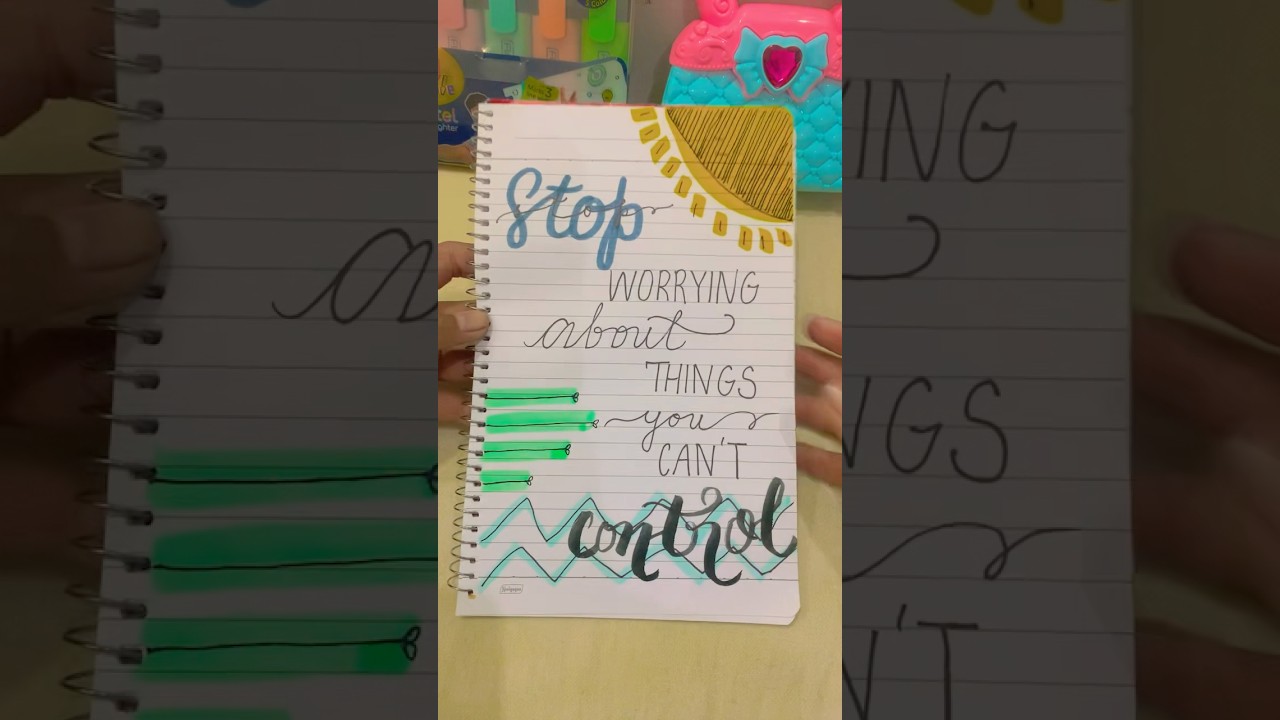 Stop
WORRYING
about
THINGS
you
CAN'T
control